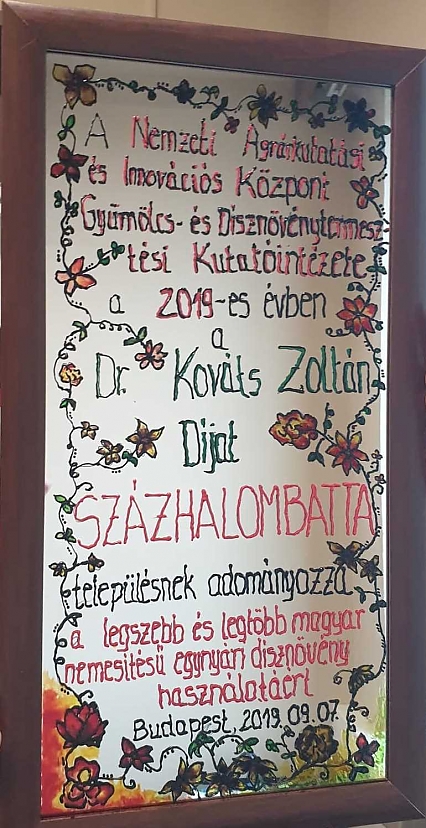 A Nemzeti Agrárkutatási
és Innovációs Központ
Gyümölcs- és Disznövénytermesz-
tési Kutatóintézete
a 2019-es évben
a
Dr. Kováts Zoltán
Díjat
SZÁZHALOMBATTA
településnek adományozza
a legszebb és legtöbb magyar
nemesítésű egynyári disznövény
használatáért
Budapest, 2019. 09. 07.